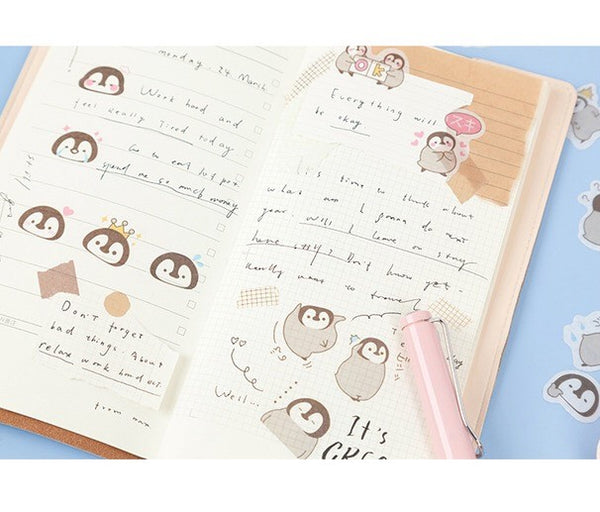 monday. 24 March
Work hard and
feel Really Tired today
Go to eat hot pot
spend me so much money
Don't forget
bad things. About
relax work hard etc.
from max
Ok
Everything will
be okay
スキ
It's time to think about
what am I gonna do next
year. Will I leave or stay
here still? Don't know yet.
Really want to travel
Well...
IT'S